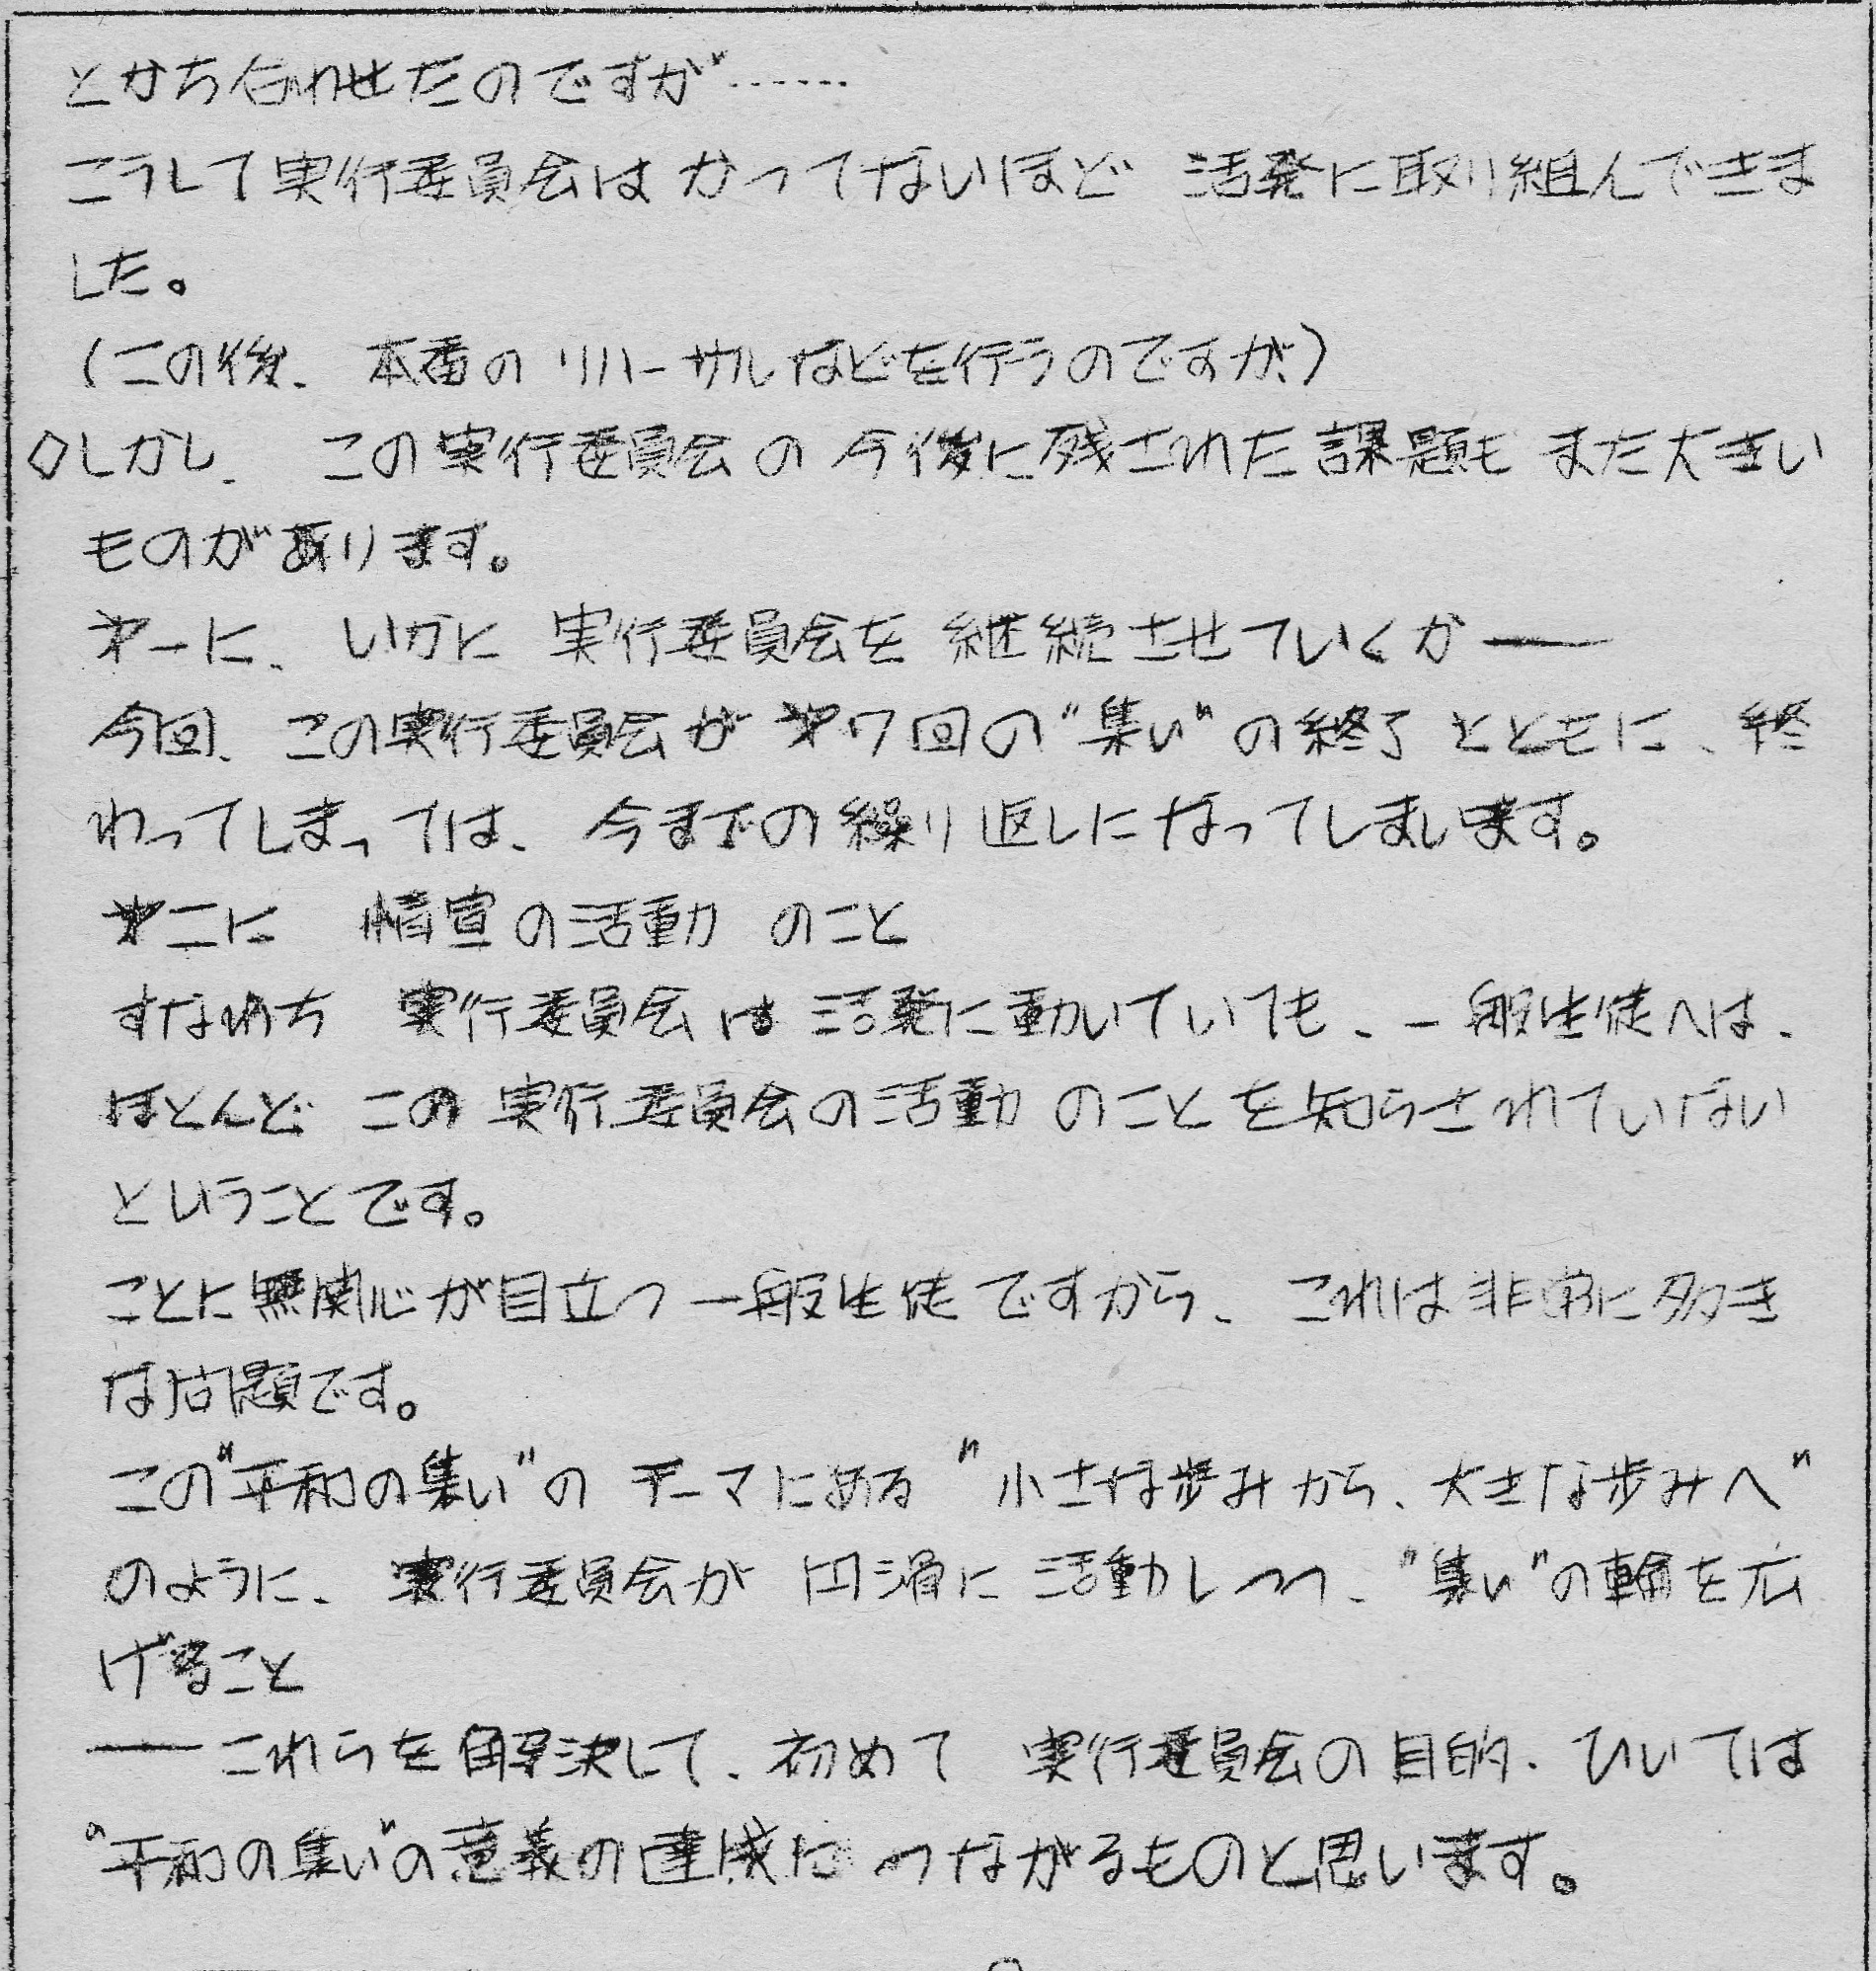 とかち合わせたのですが……
こうして実行委員会はかつてないほど 活発に取り組んできま
した。
(この後、本番のリハーサルなどを行うのですが)
◇しかし、この実行委員会の今後に残された課題もまた大きい
ものがあります。
㐧一に、いかに実行委員会を継続させていくか――
今回、この実行委員会が㐧7回の“集い”の終了とともに、終
わってしまっては、今までの繰り返しになってしまいます。
㐧二に 情宣の活動 のこと
すなわち 実行委員会は活発に動いていても、一般生徒へは、
ほとんど この実行委員会の活動のことを知らされていない
ということです。
ことに無関心が目立つ一般生徒ですから、これは非常に大き
な問題です。
この“平和の集い”の テーマにある “小さな歩みから、大きな歩みへ”
のように、実行委員会が円滑に活動しつつ、“集い”の輪を広
げること
――これらを解決して、初めて 実行委員会の目的、ひいては
“平和の集い”の意義の達成につながるものと思います。